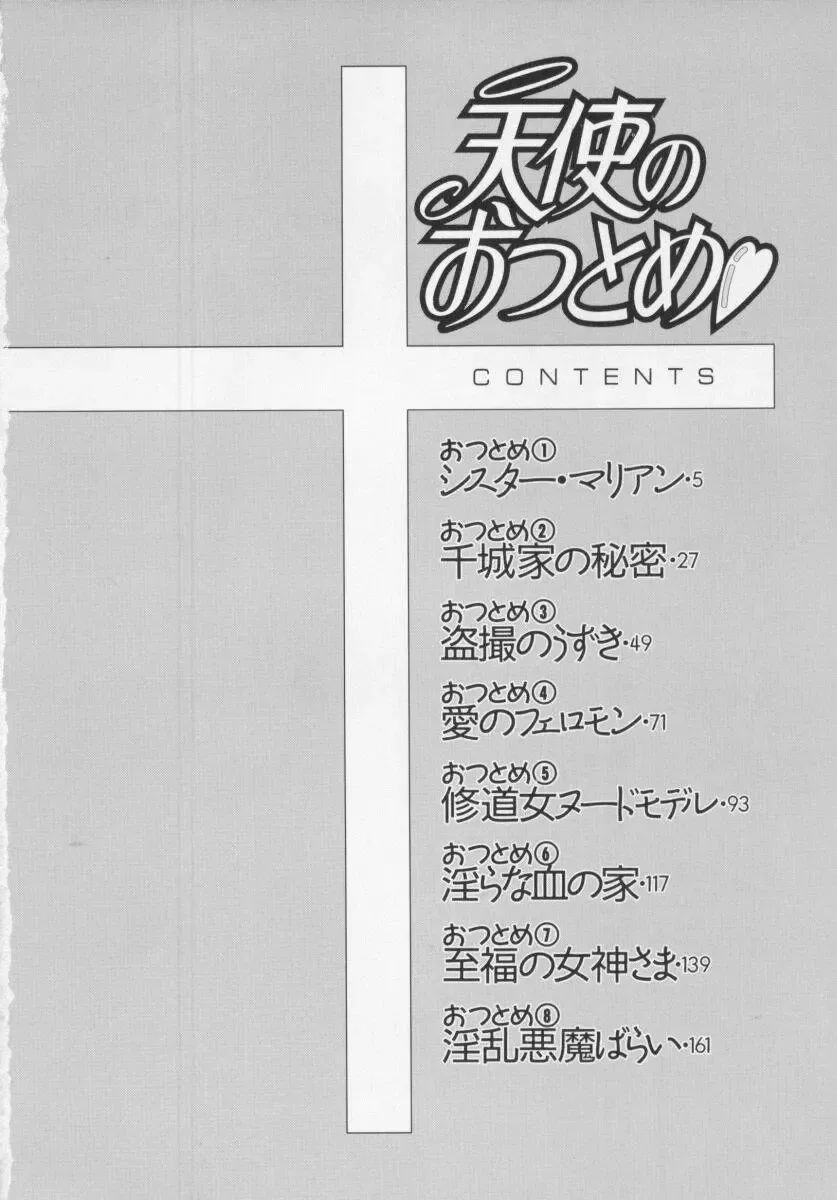 天使の
おつとめ
CONTENTS
おつとめ①
シスター・マリアン・5
おつとめ②
千城家の秘密・27
おつとめ③
盗撮のうずき・49
おつとめ④
愛のフェロモン・71
おつとめ⑤
修道女ヌードモデル・93
おつとめ⑥
淫らな血の家・117
おつとめ⑦
至福の女神さま・139
おつとめ⑧
淫乱悪魔ばらい・161